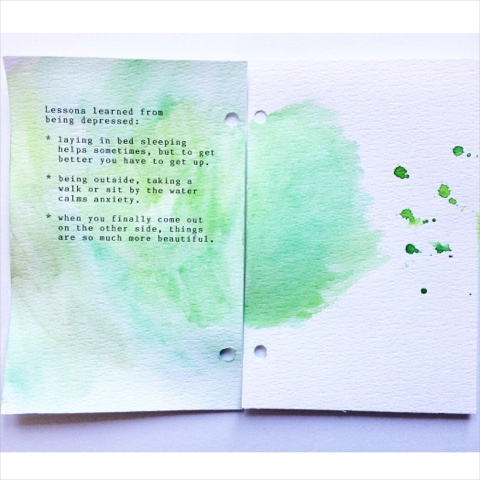 Lessons learned from
being depressed:
* laying in bed sleeping
helps sometimes, but to get
better you have to get up.
* being outside, taking a
walk or sit by the water
calms anxiety.
* when you finally come out
on the other side, things
are so much more beautiful.